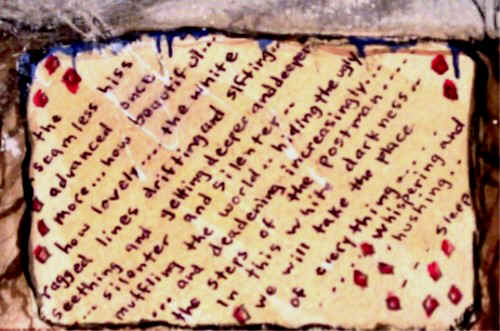 the
seamless hiss
advanced once
more... how beautiful...
how lovely... the white
ragged lines drifting and sifting...
seething and getting deeper and deeper
... silenter and silenter...
muffling the world... hiding the ugly...
... and deadening increasingly...
the steps of the postman...
In this white darkness...
we will take the place
of everything...
... whispering and
hushing... sleep